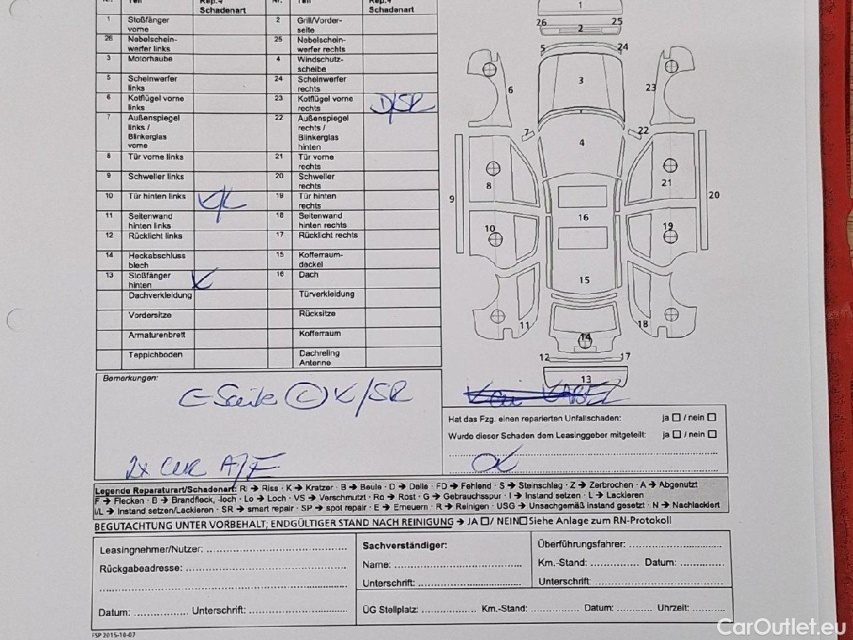 Nr. Teil Rep.+ Schadenart Nr. Teil Rep.+ Schadenart
1 Stoßfänger vorne 2 Grill/Vorderseite
26 Nebelscheinwerfer links 25 Nebelscheinwerfer rechts
3 Motorhaube 4 Windschutzscheibe
5 Scheinwerfer links 24 Scheinwerfer rechts
6 Kotflügel vorne links 23 Kotflügel vorne rechts D/SR
7 Außenspiegel links / Blinkerglas vorne 22 Außenspiegel rechts / Blinkerglas hinten
8 Tür vorne links 21 Tür vorne rechts
9 Schweller links 20 Schweller rechts
10 Tür hinten links 19 Tür hinten rechts
11 Seitenwand hinten links 18 Seitenwand hinten rechts
12 Rücklicht links 17 Rücklicht rechts
14 Heckabschluss blech 15 Kofferraum-deckel
13 Stoßfänger hinten K 16 Dach
Dachverkleidung Türverkleidung
Vordersitze Rücksitze
Armaturenbrett Kofferraum
Teppichboden Dachreling Antenne
1
26 25
2
5 24
6 3 23
7 22
4
8 21
9 20
16
10 19
15
11 18
14
12 17
13
Bemerkungen:
C K/SR
2x A/F
Hat das Fzg. einen reparierten Unfallschaden: ja / nein
Wurde dieser Schaden dem Leasinggeber mitgeteilt: ja / nein
Legende Reparaturart/Schadenart: R → Riss · K → Kratzer · B → Beule · D → Delle · FD → Fehlend · S → Steinschlag · Z → Zerbrochen · A → Abgenutzt
F → Flecken · B → Brandfleck, -loch · Lo → Loch · VS → Verschmutzt · Ro → Rost · G → Gebrauchsspur · I → Instand setzen · L → Lackieren
I/L → Instand setzen/Lackieren · SR → smart repair · SP → spot repair · E → Erneuern · R → Reinigen · USG → Unsachgemäß instand gesetzt · N → Nachlackiert
BEGUTACHTUNG UNTER VORBEHALT; ENDGÜLTIGER STAND NACH REINIGUNG → JA / NEIN Siehe Anlage zum RN-Protokoll
Leasingnehmer/Nutzer: Sachverständiger: Überführungsfahrer:
Rückgabeadresse: Name: Km.-Stand: Datum:
Unterschrift: Unterschrift:
Datum: Unterschrift: ÜG Stellplatz: Km.-Stand: Datum: Uhrzeit:
FSP 2015-10-07
CarOutlet.eu